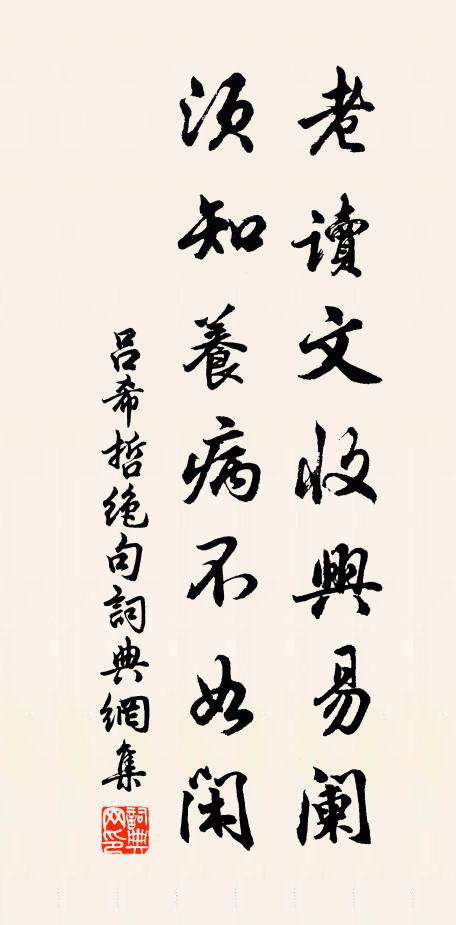 老讀文收興易阑
須知養病不如閑
吕希哲绝句詞典網集
詞典網印